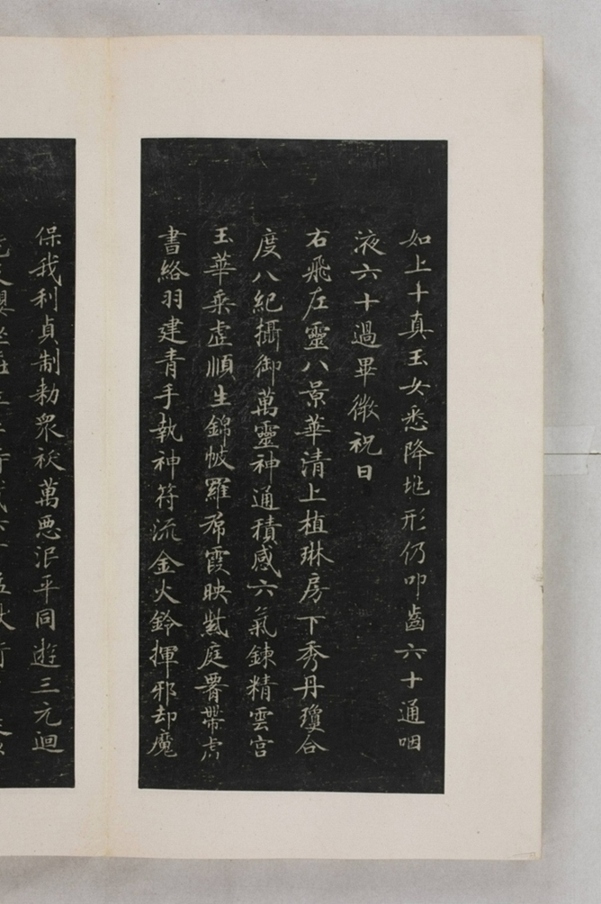 如上十真玉女悉降地形仍叩齒六十通咽
液六十過畢微祝曰
右飛左靈八景華清上植琳房下秀丹瓊合
度八紀攝御萬靈神通積感六氣鍊精雲宮
玉華乘虛順生錦帔羅帬霞映紫庭腎帶虎
書絡羽建青手執神符流金火鈴揮邪却魔
保我利貞制勑衆祅萬惡泯平同遊三元迴